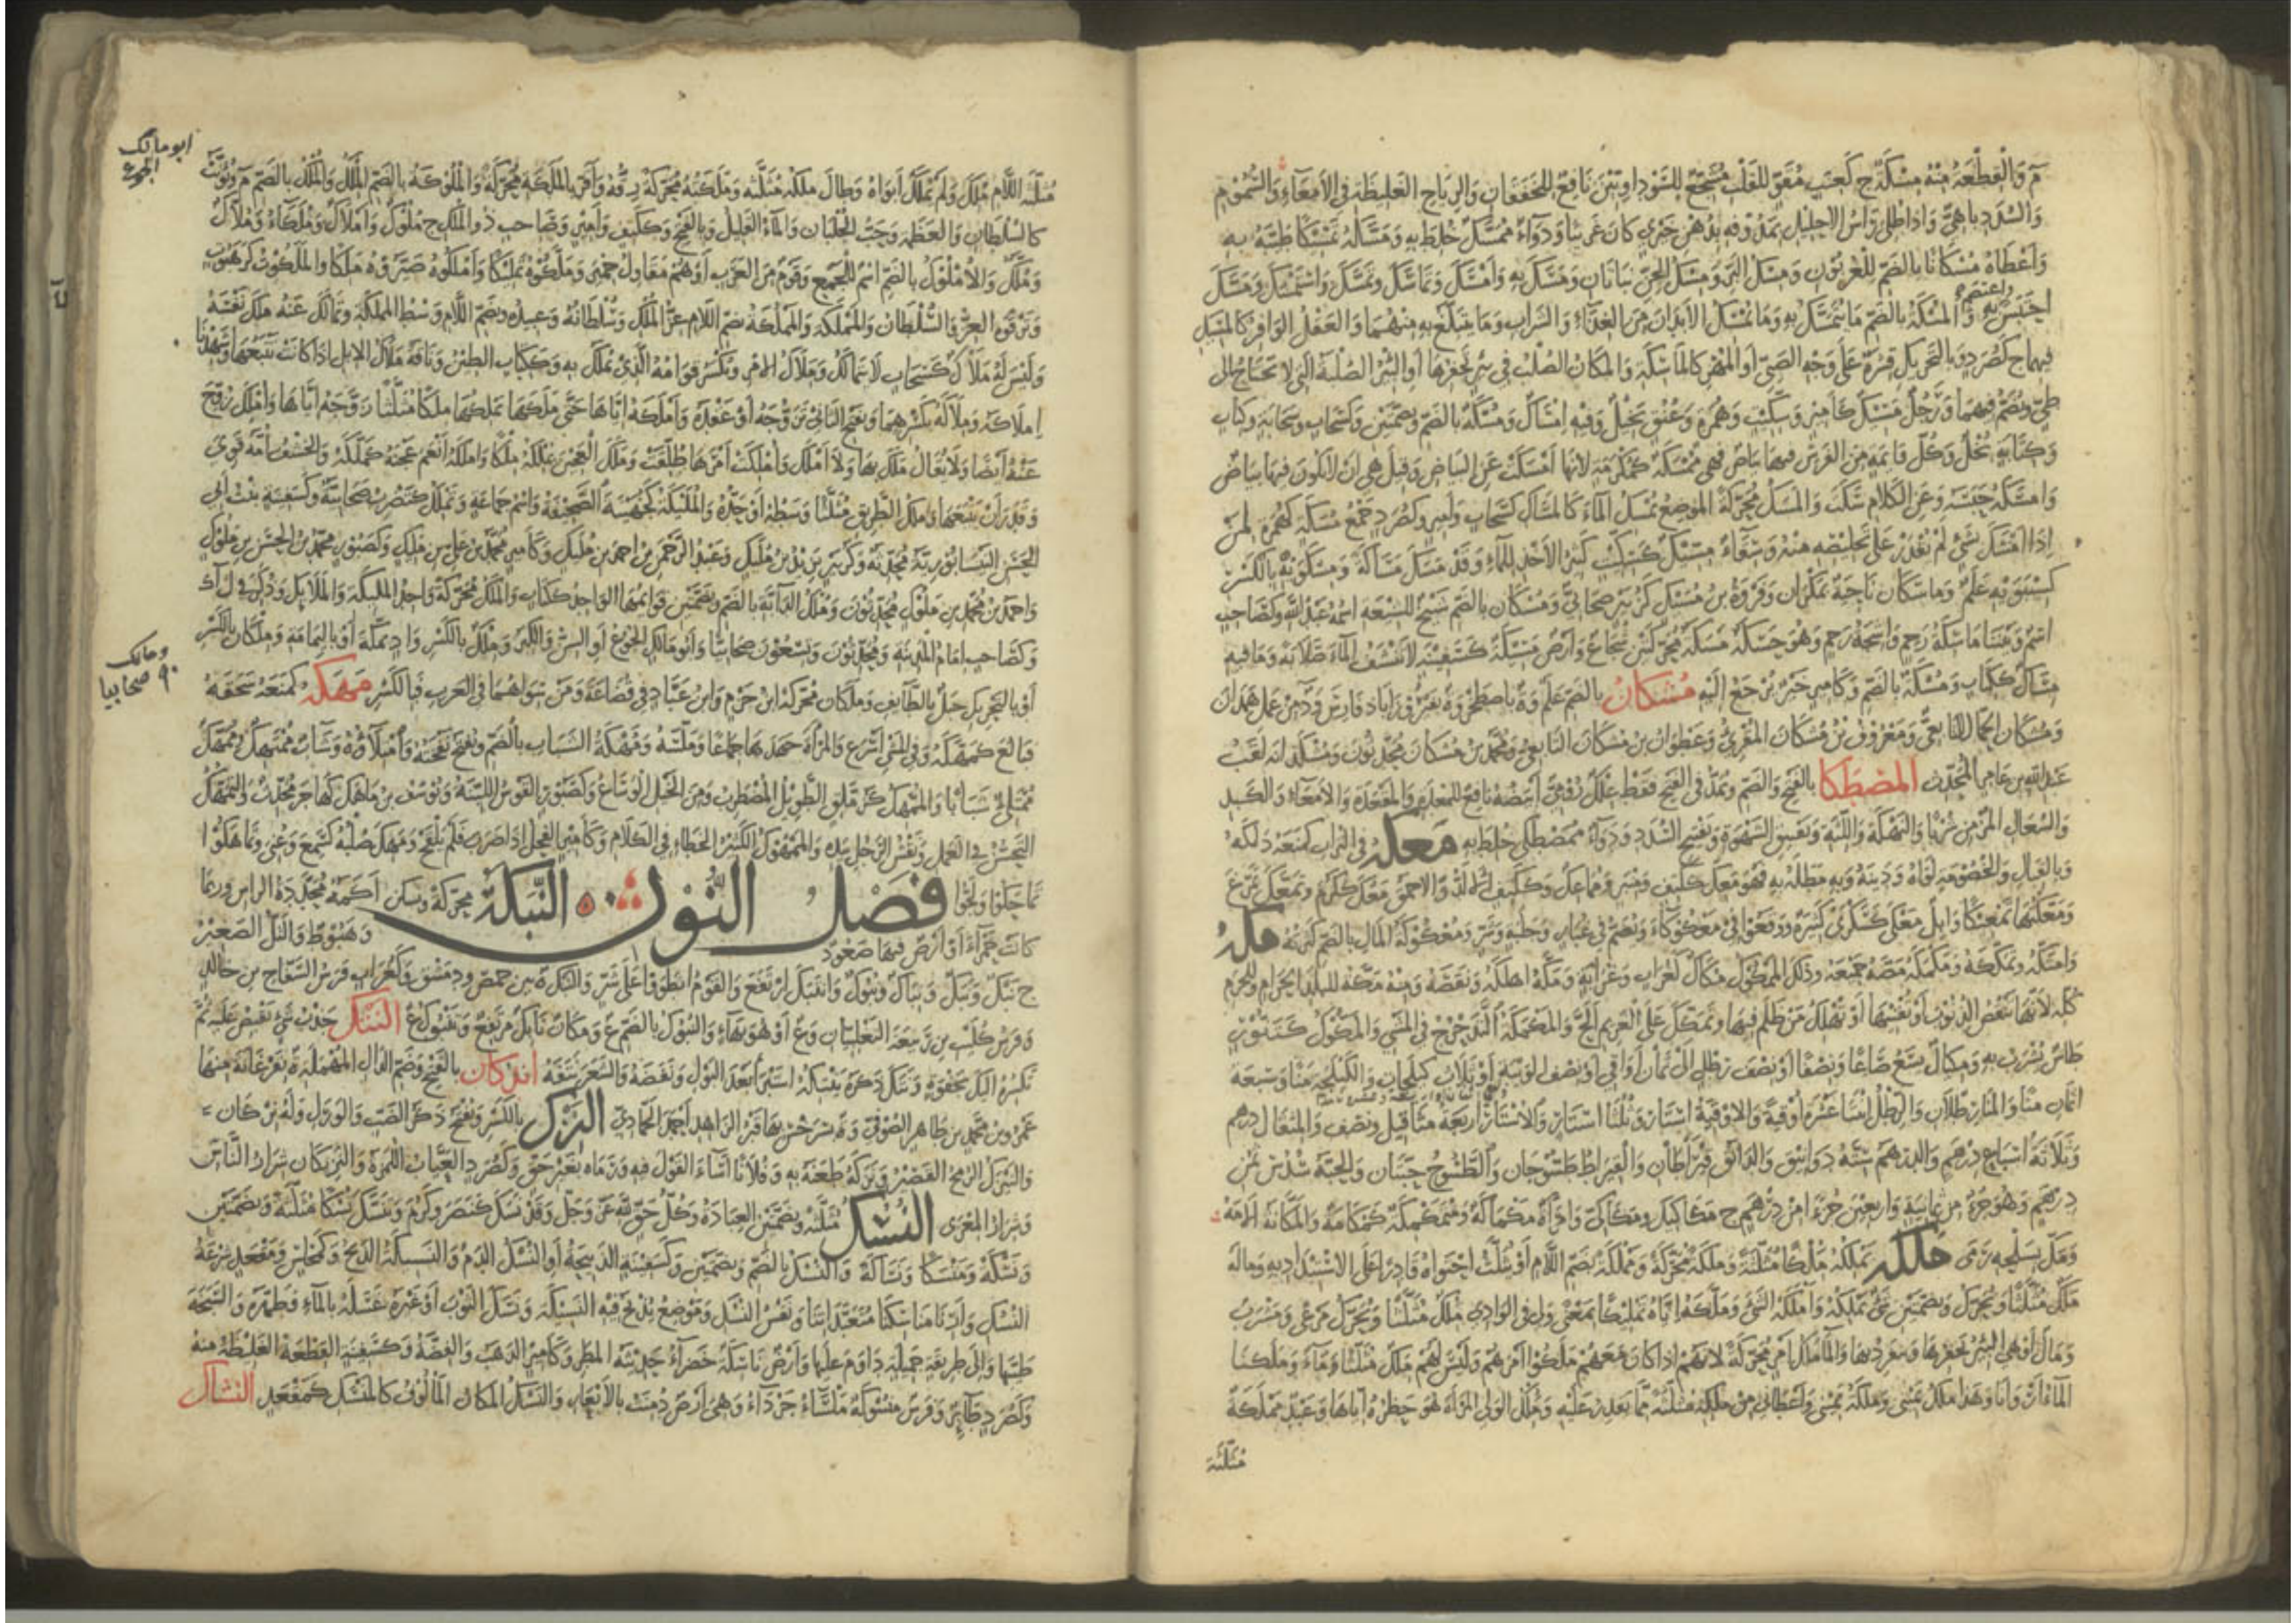 م والقطعة منه مسكة ج كعنب مقو للقلب مشجع للسوداويين نافع للخفقان والرياح الغليظة في الأمعاء والسموم
والسدد باهي وإذا طلي رأس الإحليل بمدوفه بدهن خيري كان غريبا ودواء ممسك خلط به ومسكه تمسيكا طيبه به
وأعطاه مسكانا بالضم للعربون ومسك البر ومسك الجن نباتان ومسك به وأمسك وتماسك وتمسك واستمسك ومسك
احتبس واعتصم به والمسكة بالضم ما يتمسك به وما يمسك الأبدان من الغذاء والشراب وما يتبلغ به منهما والعقل الوافر كالمسيك
فيهما ج كصرد وبالتحريك قشرة على وجه الصبي أو المهر كالماسكة والمكان الصلب في بئر تحفرها أو البئر الصلبة التي لا تحتاج إلى
طي ويضم فيهما ورجل مسيك كأمير وسكيت وهمزة وعنق بخيل وفيه إمساك ومسكة بالضم وبضمتين وكسحاب وسحابة وكتاب
وكتابة بخل وكل قائمة من الفرس فيها بياض فهي ممسكة كمكرمة لأنها أمسكت عن البياض وقيل هي أن لا يكون فيها بياض
وأمسكه حبسه وعن الكلام سكت والمسك محركة الموضع يمسك الماء كالمساك كسحاب وأمير وكصرد جمع مسكة كهمزة لمن
إذا أمسك بشيء لم يقدر على تخليصه منه وسقاء مسيك كسكيت كثير الأخذ للماء وقد مسك مساكة ومسكويه بالكسر
كسيبويه علم وماسكان ناحية بمكران وفروة بن مسيك كزبير صحابي ومسكان بالضم شيخ للشيعة اسمه عبد الله وكصاحب
اسم وبيننا ماسكة رحم واشجة رحم وهو حسكة مسكة محركتين شجاع وأرض مسيكة كسفينة لا تنشف الماء صلابة وما فيه
مساك ككتاب ومسكة بالضم وكأمير خير يرجع إليه مشكان بالضم علم وة بإصطخر وة بفيروزاباد فارس ود من عمل همذان
ومشكان الحمال التابعي ومعروف بن مشكان المقرئ وعطوان بن مشكان التابعي ومحمد بن مشكان محدثون ومشكدانه لقب
عبد الله بن عامر المحدث المصطكا بالفتح والضم ويمد في الفتح فقط علك رومي أبيضه نافع للمعدة والمقعدة والأمعاء والكبد
والسعال المزمن شربا والنهكة واللثة وتفتيق الشهوة وتفتيح السدد ودواء ممصطك خلط به معكه في التراب كمنعه دلكه
وبالقتال والخصومة لواه ودينه وبه مطله به فهو معك ككتف ومنبر ومماعك وككتف الألد والأحمق معك ككرم وتمعك تمرغ
ومعكتها تمعيكا وإبل معكى كسكرى كثيرة ووقعوا في معكوكاء ويضم في غبار وجلبة وشر ومعكوكة المال بالضم كثرته مكه
وامتكه وتمككه ومكمكه مصه جميعه وذلك الممكوك مكاك كغراب وغرابة ومكه أهلكه ونقصه ومنه مكة للبلد الحرام وللحرم
كله لأنها تنقص الذنوب أو تفنيها أو تهلك من ظلم فيها وتمكك على الغريم ألح والمكمكة التدحرج في المشي والمكوك كتنور
طاس يشرب به ومكيال يسع صاعا ونصفا أو نصف رطل إلى ثمان أواقي أو نصف الويبة أو ثلاث كيلجات والكيلجة منا وسبعة
أثمان منا والمنا رطلان والرطل اثنتا عشرة أوقية والأوقية إستار وثلثا إستار والإستار أربعة مثاقيل ونصف والمثقال درهم
وثلاثة أسباع درهم والدرهم ستة دوانيق والدانق قيراطان والقيراط طسوجان والطسوج حبتان والحبة سدس ثمن
درهم وهو جزء من ثمانية وأربعين جزءا من درهم ج مكاكيك ومكاكي وامرأة مكماكة ومتمكمكة كمكامة والمكانة الأمة
ومك بسلحه رمى ملكه يملكه ملكا مثلثة وملكة محركة ومملكة بضم اللام أو يثلث احتواه قادرا على الاستبداد به وماله
ملك مثلثا ويحرك وبضمتين شيء يملكه وأملكه الشيء وملكه إياه تمليكا بمعنى ولي في الوادي ملك مثلثا ويحرك مرعى ومشرب
ومال أو هي البئر تحفرها وتنفرد بها والماء ملك أمر محركة لأنهم إذا كان معهم ملكوا أمرهم وليس لهم ملك مثلثا ماء وملكنا
الماء أروانا وهذا ملك يميني وملكة يميني وأعطاني من ملكه مثلثة مما يقدر عليه وملك الولي المرأة هو حظره إياها وعبد مملكة
مثلثة
مثلثة اللام ملك ولم يملك أبواه وطال ملكه مثلثه وملكته محركة رقه وأقر بالملكة محركة والملوكة بالضم الملك والملك بالضم م ويؤنث
كالسلطان والعظمة وحب الجلبان والماء القليل وبالفتح وككتف وأمير وصاحب ذو الملك ج ملوك وأملاك وملكاء وملاك
وملك والأملوك بالضم اسم للجمع وقوم من العرب أو هم مقاول حمير وملكوه تمليكا وأملكوه صيروه ملكا والملكوت كرهبوت
وترقوة العز والسلطان والمملكة والمملكة بضم اللام عز الملك وسلطانه وعبيده وبضم اللام وسط المملكة وتمالك عنه ملك نفسه
وليس له ملاك كسحاب لا يتمالك وملاك الأمر ويكسر قوامه الذي يملك به وككتاب الطين وناقة ملاك الإبل إذا كانت تتبعها وشهدنا
إملاكه وملاكه بكسرهما ويفتح الثاني تزوجه أو عقده وأملكه إياها حتى ملكها يملكها ملكا مثلثا زوجه إياها وأملك زوج
عنه أيضا ولا يقال ملك بها ولا أملك وأملكت أمرها طلقت وملك العجين يملكه ملكا وأملكه أنعم عجنه كملكه والخشف أمه قوي
وقدر أن يتبعها وملك الطريق مثلثا وسطه أو حده والمليكة كجهينة الصحيفة واسم جماعة وتملك كتضرب صحابية وكسفينة بنت أبي
الحسن النيسابورية محدثة وكزبير يزيد بن مليك وعبد الرحمن بن أحمد بن مليك وكأمير محمد بن علي بن مليك وكصبور محمد بن الحسن بن ملوك
وأحمد بن محمد بن ملوك محدثون وملك الدابة بالضم وبضمتين قوائمها الواحد ككتاب والملك محركة واحد الملئكة والملائك وذكر في ل أ ك
وكصاحب إمام المدينة ومحدثون وتسعون صحابيا وأبو مالك الجوع أو السن والكبر وملك بالكسر واد بمكة أو باليمامة وملكان بالكسر
أو بالتحريك جبل بالطائف وملكان محركة ابن جرم وابن عباد في قضاعة ومن سواهما في العرب فبالكسر مهكه كمنعه سحقه
فبالغ كمهكه وفي المشي أسرع والمرأة جهدها جماعا وملسه ومهكة الشباب بالضم ويفتح نفخته وامتلاؤه وشاب ممتهك وممهك
ممتلئ شبابا والممهك كزملق الطويل المضطرب ومن الخيل الوساع وكصبور القوس اللينة ويوسف بن ماهك كهاجر محدث والتمهك
التحسين في العمل ونقش الرحل بيده والممهوك الكثير الخطاء في الكلام وكأمير الفحل إذا ضرب فلم يلقح ومهك صلبه كسمع وعني وتماهكوا
تماحكوا ولجوا فصل النون النبكة محركة وتسكن أكمة محددة الرأس وربما
كانت حمراء أو أرض فيها صعود وهبوط والتل الصغير
ج نبك ونبك ونباك ونبوك وانتبك ارتفع والقوم انطووا على شر والنبك ة بين حمص ودمشق وكغراب فرس السفاح بن خالد
وفرس كليب بن ربيعة التغلبيان وع أو هو بهاء والنبوك بالضم ع ومكان نابك مرتفع وتنبوك ع النتك جذب شيء تقبض عليه ثم
تكسره إليك بجفوة ونتك ذكره ينتكه استبرأ بعد البول ونفضه والشعر نتفه أندكان بالفتح وضم الدال المهملة ة بفرغانة منها
عمر بن محمد بن طاهر الصوفي وة بسرخس بها قبر الزاهد أحمد الحمادي النزك بالكسر ويفتح ذكر الضب والورل وله نزكان
والنيزك الرمح القصير ونزكه طعنه به وفلانا أساء القول فيه ورماه بغير حق وكصرد العياب اللمزة والنزكان شرار الناس
وشرار المعزى النسك مثلثة وبضمتين العبادة وكل حق لله عز وجل وقد نسك كنصر وكرم وتنسك نسكا مثلثة وبضمتين
ونسكة ومنسكا ونساكة والنسك بالضم وبضمتين وكسفينة الذبيحة أو النسك الدم والنسيكة الذبح وكمجلس ومقعد شرعة
النسك وأرنا مناسكنا متعبداتنا ونفس النسك وموضع يذبح فيه النسيكة ونسك الثوب أو غيره غسله بالماء فطهره والسبخة
طيبها وإلى طريقة جميلة داوم عليها وأرض ناسكة خضراء حديثة المطر وكأمير الذهب والفضة وكسفينة القطعة الغليظة منه
وكصرد طائر وفرس منسوكة ملساء جرداء وهي أرض دمنت بالأبعار والنسك المكان المألوف كالمنسك كمقعد النشاك
أبو مالك
الجوع
ومالك
٩٠ صحابيا